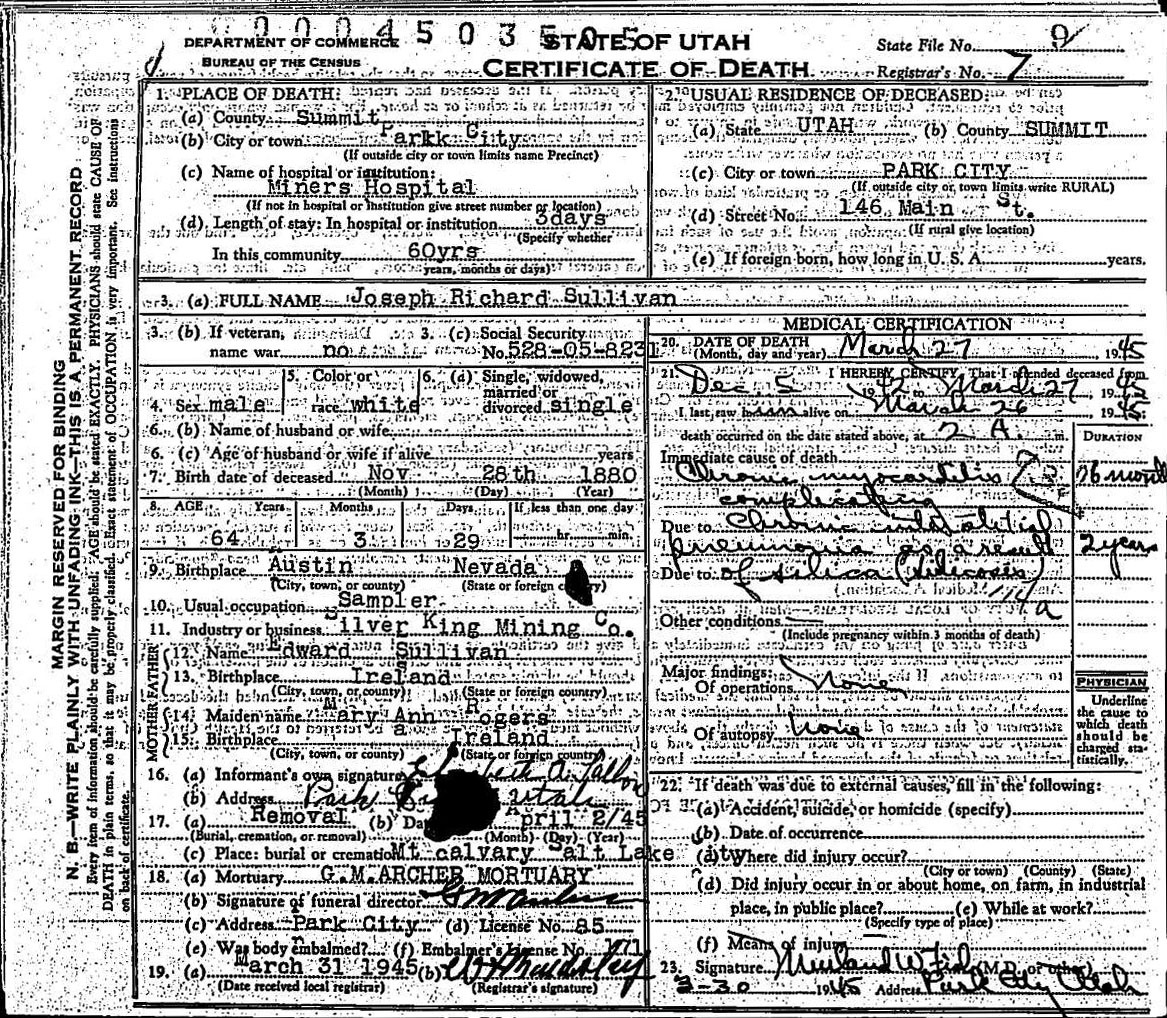 00045035
DEPARTMENT OF COMMERCE
BUREAU OF THE CENSUS
STATE OF UTAH
CERTIFICATE OF DEATH
State File No. 9
Registrar's No. 7
MARGIN RESERVED FOR BINDING
N. B.—WRITE PLAINLY WITH UNFADING INK—THIS IS A PERMANENT RECORD
Every item of information should be carefully supplied. AGE should be stated EXACTLY. PHYSICIANS should state CAUSE OF
DEATH in plain terms, so that it may be properly classified. Exact statement of OCCUPATION is very important. See instructions
on back of certificate.
1. PLACE OF DEATH:
(a) County Summit
(b) City or town Parkk City
(If outside city or town limits name Precinct)
(c) Name of hospital or institution:
Miners Hospital
(If not in hospital or institution give street number or location)
(d) Length of stay: In hospital or institution 3days
(Specify whether
In this community 60yrs
years, months or days)
2. USUAL RESIDENCE OF DECEASED:
(a) State UTAH (b) County SUMMIT
(c) City or town PARK CITY
(If outside city or town limits write RURAL)
(d) Street No. 146 Main St.
(If rural give location)
(e) If foreign born, how long in U. S. A. years.
3. (a) FULL NAME Joseph Richard Sullivan
3. (b) If veteran, name war no
3. (c) Social Security No. 528-05-8231
4. Sex male
5. Color or race white
6. (a) Single, widowed, married or divorced single
6. (b) Name of husband or wife
6. (c) Age of husband or wife if alive years
7. Birth date of deceased Nov 28th 1880
(Month) (Day) (Year)
8. AGE Years Months Days If less than one day
64 3 29 hr. min.
9. Birthplace Austin Nevada
(City, town, or county) (State or foreign
10. Usual occupation Sampler
11. Industry or business Silver King Mining Co.
FATHER
12. Name Edward Sullivan
13. Birthplace Ireland
(City, town, or county) (State or foreign country)
MOTHER
14. Maiden name Mary Ann Rogers
15. Birthplace Ireland
(City, town, or county) (State or foreign country)
16. (a) Informant's own signature
(b) Address Park Utah
17. (a) Removal (b) April 2/45
(Burial, cremation, or removal) (Month) (Day) (Year)
(c) Place: burial or cremation Mt calvary Salt Lake City
18. (a) Mortuary G.M.ARCHER MORTUARY
(b) Signature of funeral director
(c) Address Park City (d) License No. 85
(e) Was body embalmed? (f) Embalmer's License No.
19. (a) March 31 1945 (b)
(Date received local registrar) (Registrar's signature)
MEDICAL CERTIFICATION
20. DATE OF DEATH
(Month, day and year) March 27, 1945
21. I HEREBY CERTIFY, That I attended deceased from
Dec 5 1942 to March 27 1945
I last saw him alive on March 26 1945
death occurred on the date stated above, at 2 A. m.
DURATION
Immediate cause of death
Chronic myocarditis
complicating
Due to Chronic interstitial
pneumonia as a result 2 years
Due to of silica (silicosis)
114a
Other conditions
(Include pregnancy within 3 months of death)
Major findings:
Of operations None
Of autopsy None
PHYSICIAN
Underline
the cause to
which death
should be
charged sta-
tistically.
22. If death was due to external causes, fill in the following:
(a) Accident, suicide, or homicide (specify)
(b) Date of occurrence
Where did injury occur?
(City or town) (County) (State)
(d) Did injury occur in or about home, on farm, in industrial
place, in public place? (e) While at work?
(Specify type of place)
(f) Means of injury
23. Signature M.D. or other
3-30 1945 Address Park City Utah